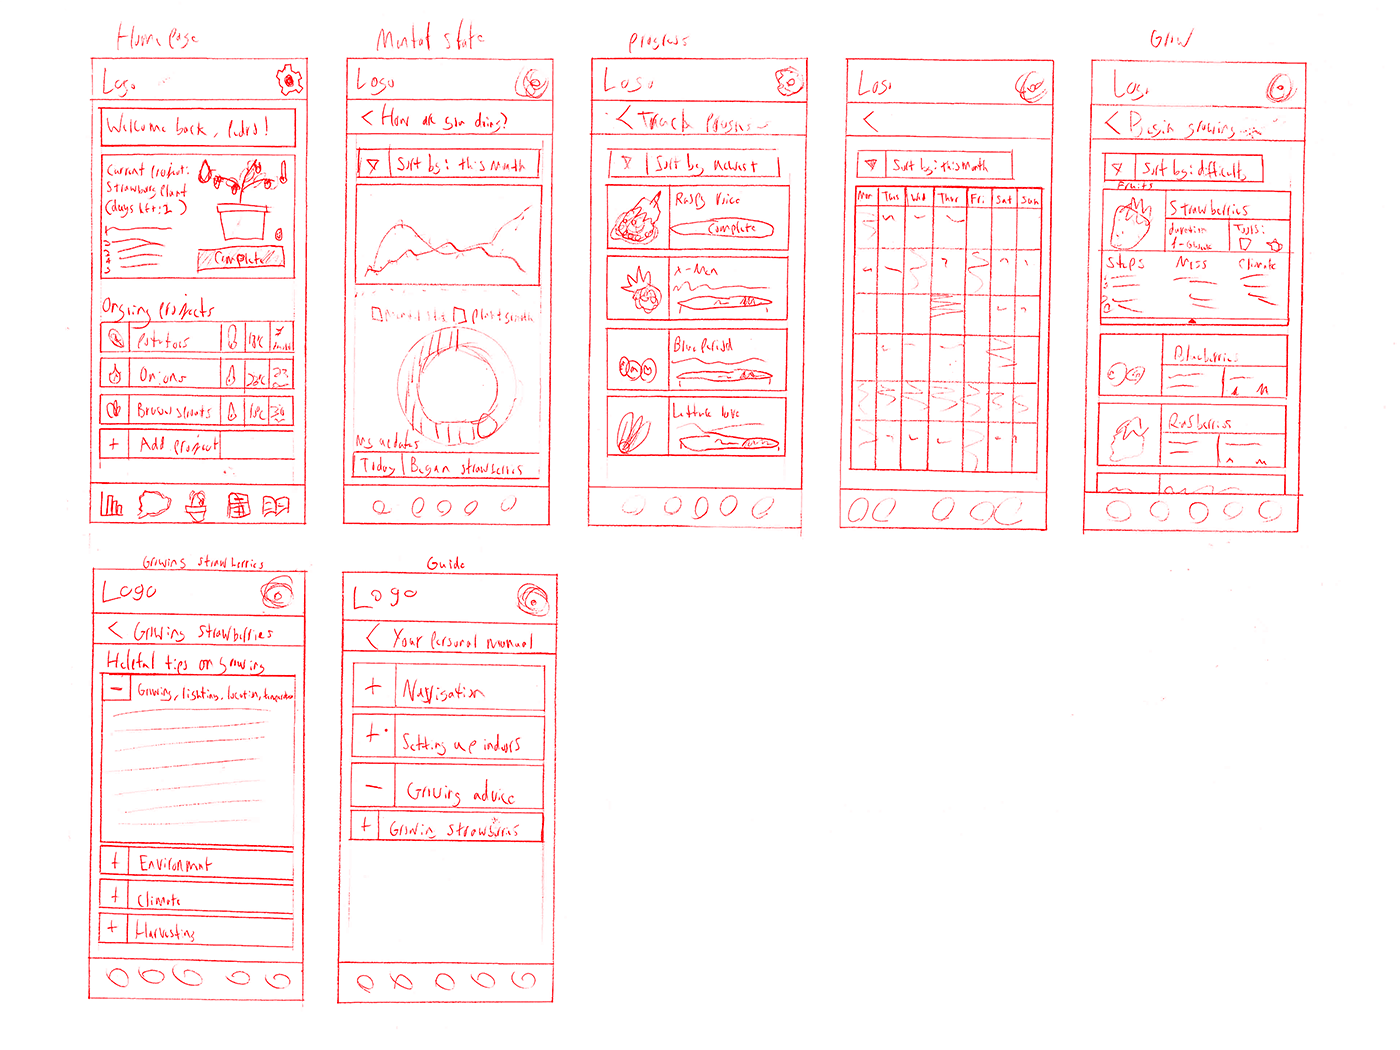 Home page
Logo
Welcome back, Pedro!
Current project:
Strawberry Plant
(days left: 2)
1
2
3
4
5
Complete
Ongoing projects
Potatoes
Onions
+ Add project
Mental state
Logo
< How are you doing?
Sort by: this month
plant growth
My updates
Today Began strawberries
progress
Logo
< Track progress
Sort by newest
Complete
X-Men
Blue Period
Lettuce love
Logo
<
Sort by: this month
Mon Tues Wed Thur Fri Sat Sun
Grow
Logo
< Begin growing
Sort by: difficulty
Fruits
Strawberries
duration
Tools:
Steps
Climate
Blueberries
Rasberries
Growing strawberries
Logo
< Growing strawberries
Helpful tips on growing
- Growing, lighting, location, temperature
+ Environment
+ Climate
+ Harvesting
Guide
Logo
< Your personal manual
+ Navigation
+ Setting up indoors
- Growing advice
+ Growing strawberries